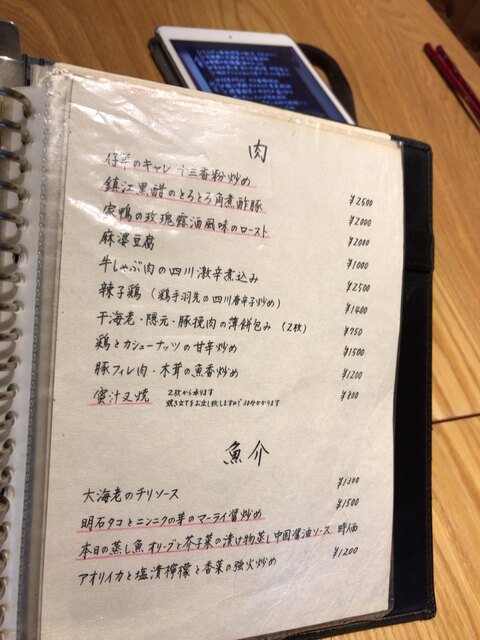 肉
仔羊のキャレ 十三香粉炒め
¥2500
鎮江黒醋のとろとろ角煮酢豚
¥2000
家鴨の玫瑰露酒風味のロースト
¥2000
麻婆豆腐
¥1000
牛しゃぶ肉の四川激辛煮込み
¥2500
辣子鶏 (鶏手羽先の四川唐辛子炒め)
¥1400
干海老・隠元・豚挽肉の薄餅包み (2枚)
¥750
鶏とカシューナッツの甘辛炒め
¥1500
豚フィレ肉・木茸の魚香炒め
¥1200
蜜汁叉焼 2枚から承ります
焼き立てをお出し致しますので20分かかります
¥800
魚介
大海老のチリソース
明石タコとニンニクの芽のマーライ醤炒め
¥1500
本日の蒸し魚 オリーブと芥子菜の漬け物蒸し 中国醤油ソース 時価
アオリイカと塩漬檸檬と香菜の強火炒め
¥1200